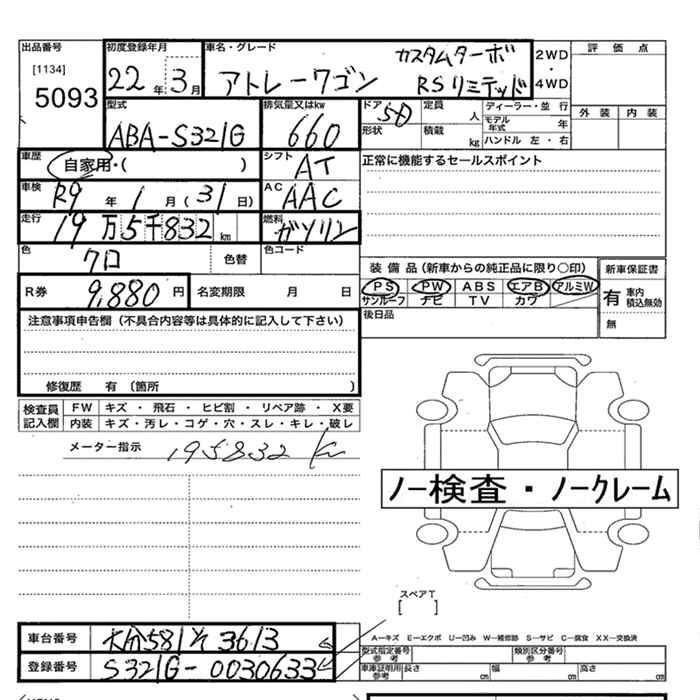 出品番号 初度登録年月 車名・グレード カスタムターボ 2WD・4WD 評価点
[1134]
5093 22年 3月 アトレーワゴン RSリミテッド
外装 内装
型式 排気量又はkw ドア 5D 定員 人 ディーラー・並行
ABA-S321G 660 形状 積載 kg モデル年式 年
ハンドル 左・右
車歴 自家用・( ) シフト AT 正常に機能するセールスポイント
車検 R9年 1月(31日) AC AAC
走行 19万5千832km 燃料 ガソリン
色 クロ 色替 色コード
装備品(新車からの純正品に限り○印) 新車保証書
R券 9,880円 名変期限 月 日 PS PW ABS エアB アルミW 有 車内 積込無効
サンルーフ ナビ TV カワ
注意事項申告欄(不具合内容等は具体的に記入して下さい) 後日品 無
修復歴 有〔箇所 〕
検査員記入欄 FW キズ・飛石・ヒビ割・リペア跡・X要
内装 キズ・汚レ・コゲ・穴・スレ・キレ・破レ
メーター指示 195832 Km
ノー検査・ノークレーム
スペアT
[ ]
車台番号 大分581そ3613 A-キズ E-エクボ U-凹み W-補修跡 S-サビ C-腐食 XX-交換済
登録番号 S321G-0030633 型式指定番号 参考 類別区分番号 参考
車庫証明用 参考 長さ cm 幅 cm 高さ cm